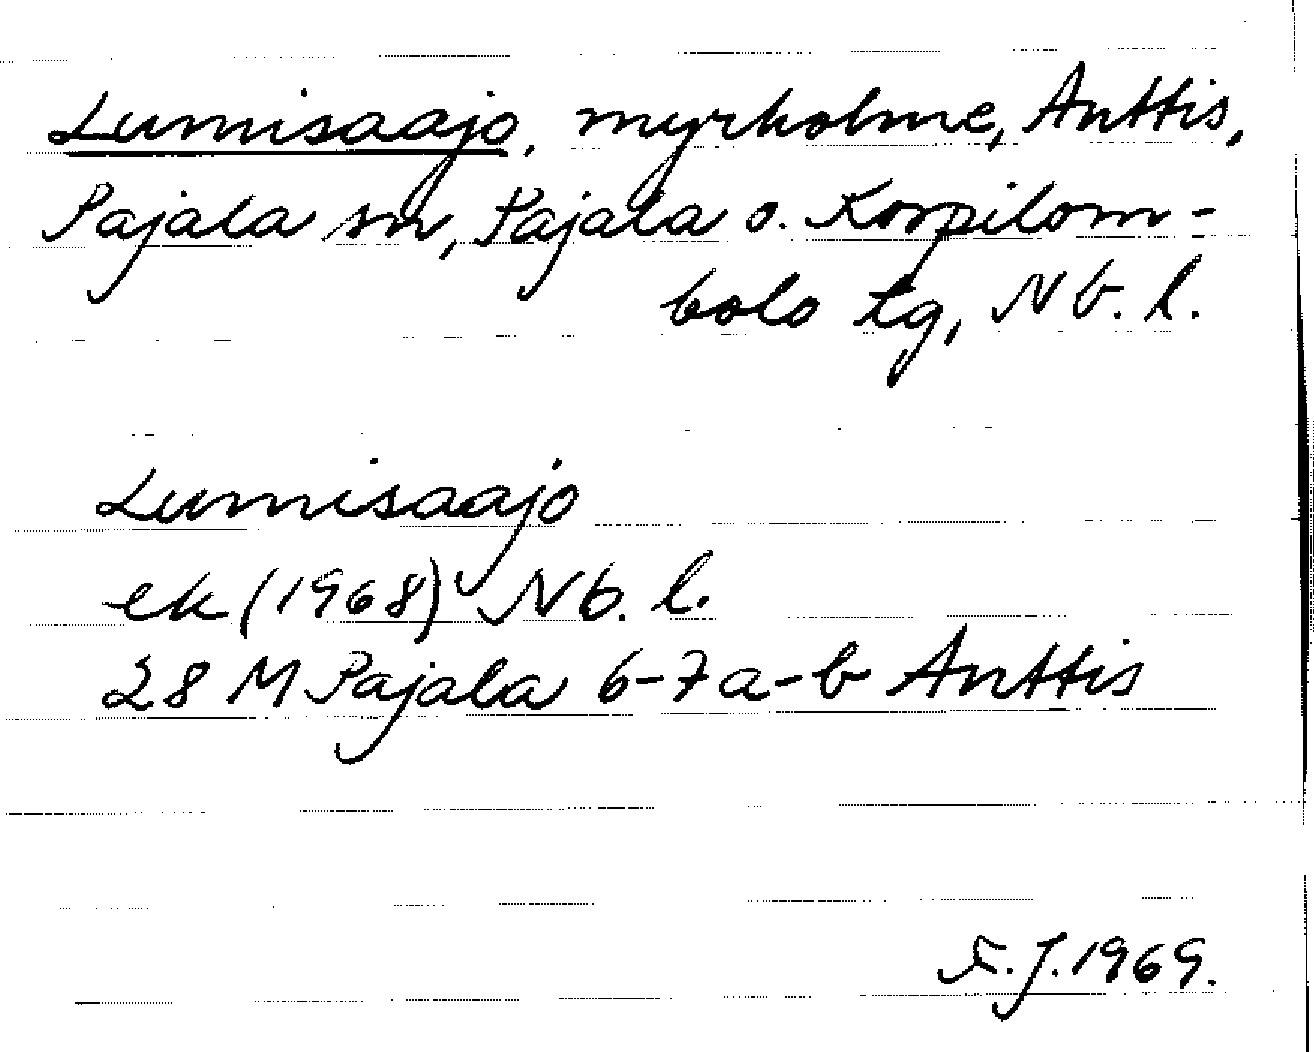 Lumisaajo, myrholme, Anttis,
Pajala sn, Pajala o. Korpilom-
bolo tg, Nb. l.
Lumisaajo
ek (1968) Nb. l.
28 M Pajala 6-7a-b Anttis
J. 1969.